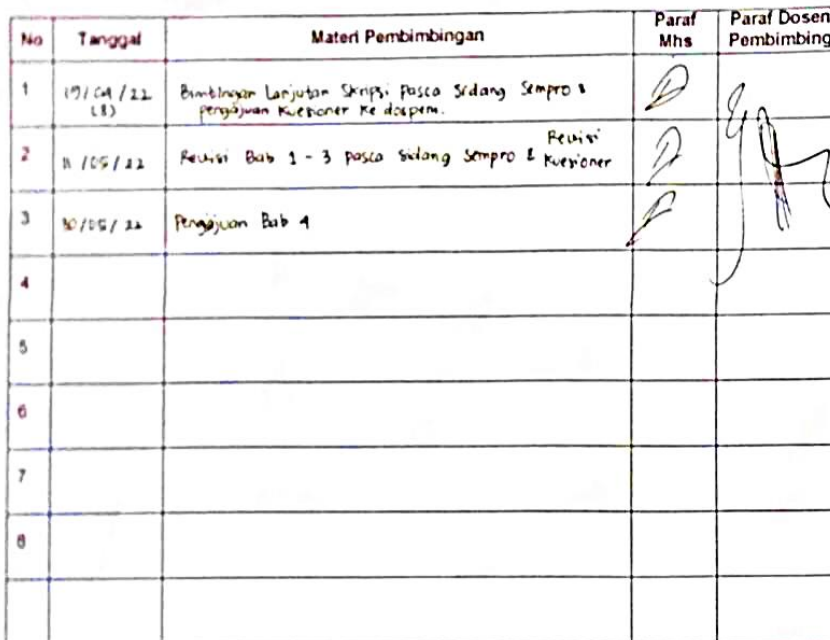 No Tanggal Materi Pembimbingan Paraf Mhs Paraf Dosen Pembimbing
1 19/04/22 Bimbingan Lanjutan Skripsi Pasca Sidang Sempro &
pengajuan kuesioner ke dospem.
2 11/05/22 Revisi Bab 1 - 3 pasca sidang sempro & Revisi kuesioner
3 30/05/22 Pengajuan Bab 4
4
5
6
7
8